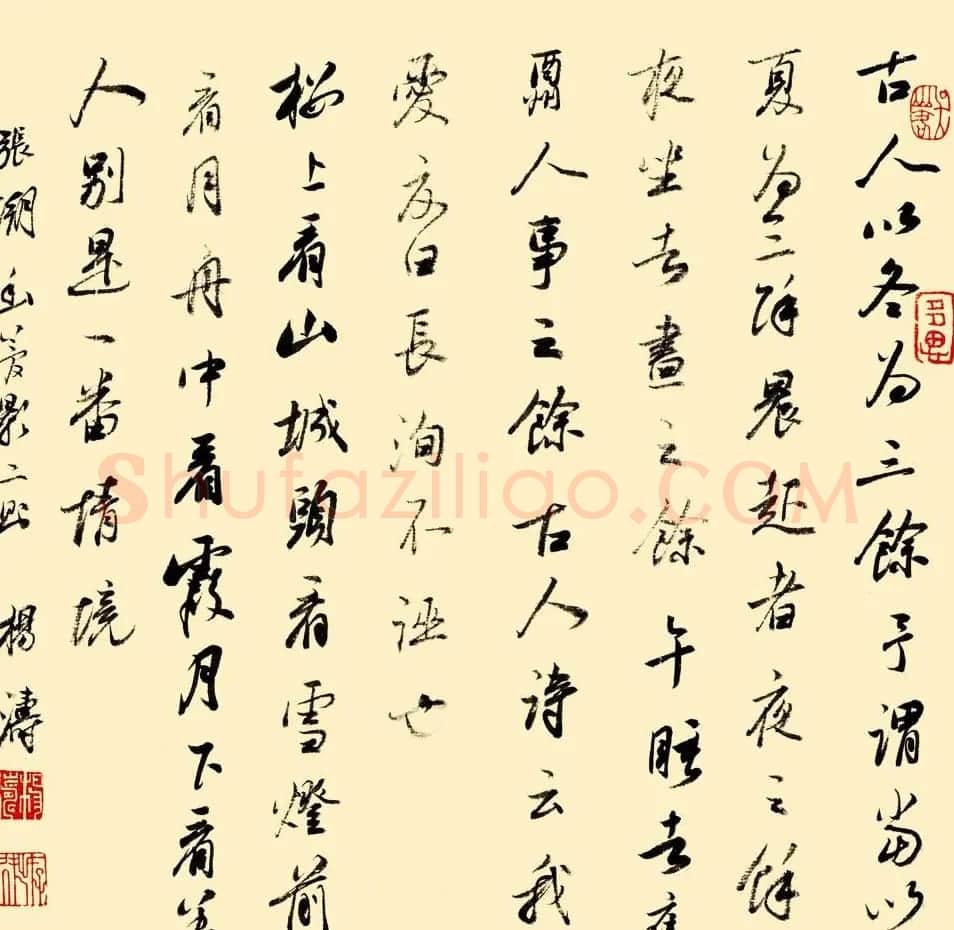 古人以冬为三餘予謂當以
夏为三餘晨起者夜之餘
夜坐者晝之餘午睡者
酬人事之餘古人詩云我
愛夏日長洵不誣也
樓上看山城頭看雪燈前
看月舟中看霞月下看美
人别是一番情境
張潮幽夢影二則 楊濤
Shufaziliao.COM